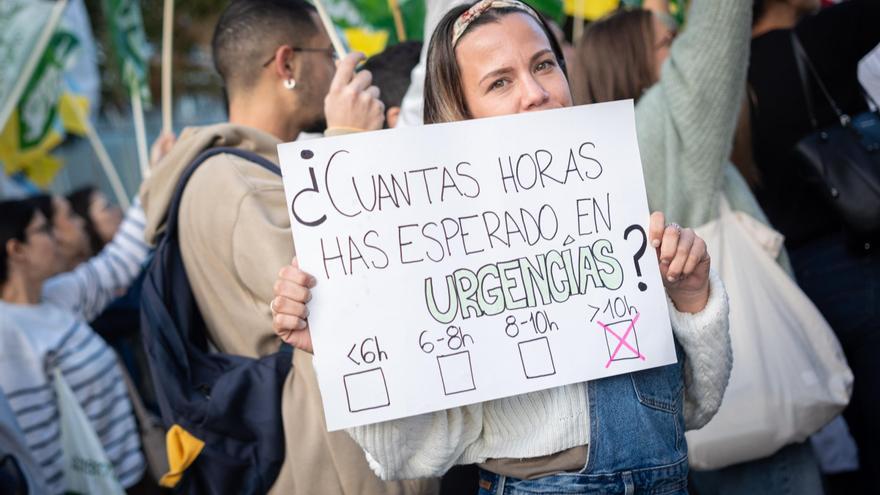 ¿CUANTAS HORAS
HAS ESPERADO EN
URGENCÍAS?
<6h 6-8h 8-10h >10h